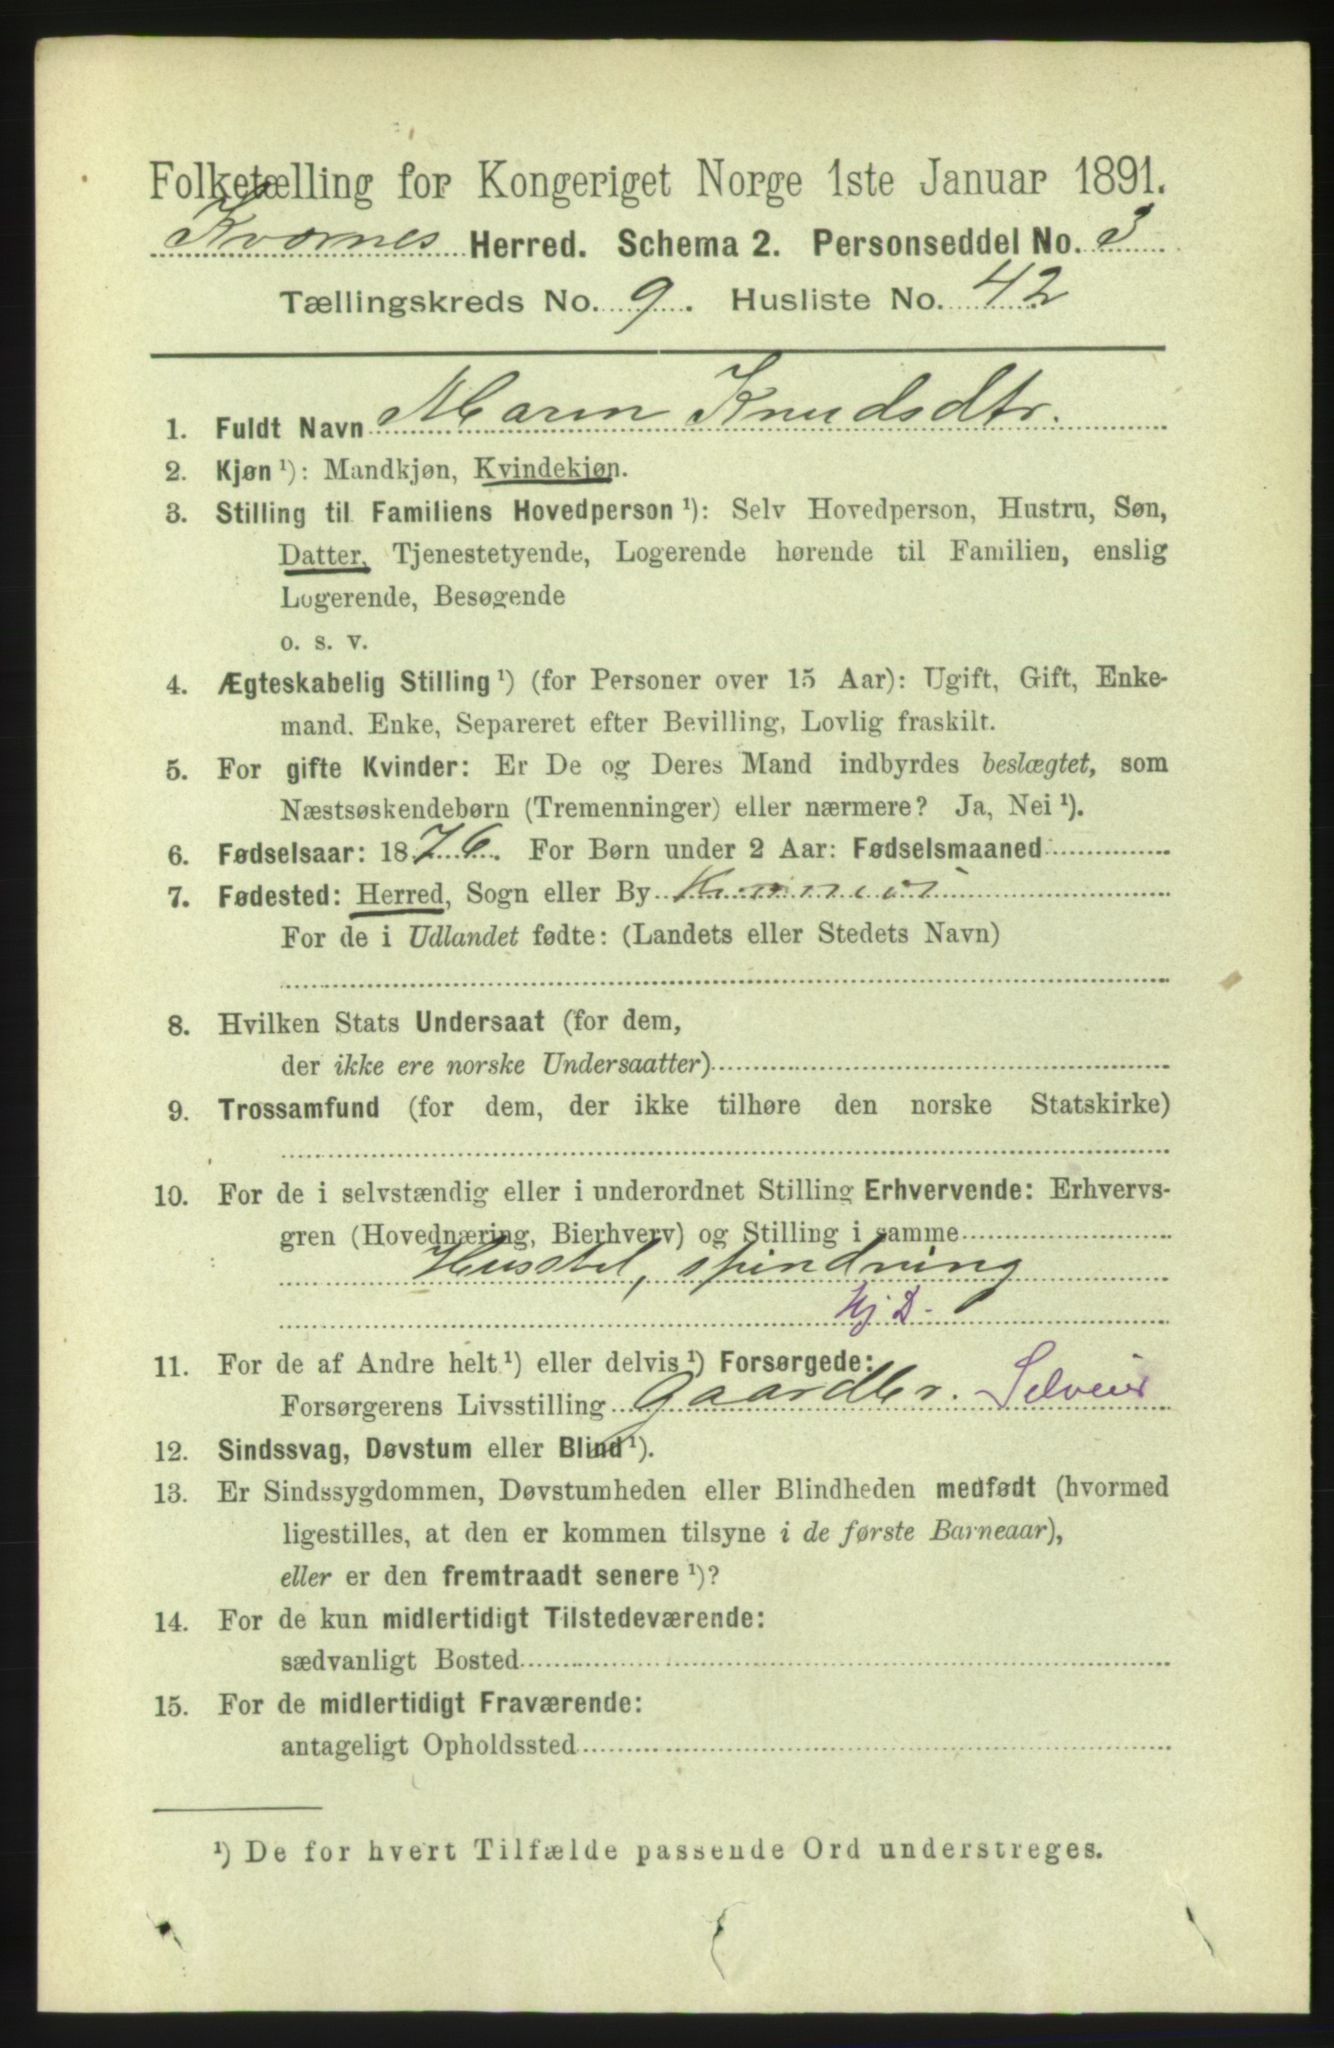 Folketælling for Kongeriget Norge 1ste Januar 1891.
Kvernes Herred. Schema 2. Personseddel No. 3
Tællingskreds No. 9. Husliste No. 42
1. Fuldt Navn Maren Knudsdtr.
2. Kjøn ¹): Mandkjøn, Kvindekjøn.
3. Stilling til Familiens Hovedperson ¹): Selv Hovedperson, Hustru, Søn,
Datter, Tjenestetyende, Logerende hørende til Familien, enslig
Logerende, Besøgende
o. s. v.
4. Ægteskabelig Stilling ¹) (for Personer over 15 Aar): Ugift, Gift, Enke-
mand. Enke, Separeret efter Bevilling, Lovlig fraskilt.
5. For gifte Kvinder: Er De og Deres Mand indbyrdes beslægtet, som
Næstsøskendebørn (Tremenninger) eller nærmere? Ja, Nei ¹).
6. Fødselsaar: 1876. For Børn under 2 Aar: Fødselsmaaned
7. Fødested: Herred, Sogn eller By
For de i Udlandet fødte: (Landets eller Stedets Navn)
8. Hvilken Stats Undersaat (for dem,
der ikke ere norske Undersaatter)
9. Trossamfund (for dem, der ikke tilhøre den norske Statskirke)
10. For de i selvstændig eller i underordnet Stilling Erhvervende: Erhvervs-
gren (Hovednæring, Bierhverv) og Stilling i samme
Husstel, spindning
Hj. D.
11. For de af Andre helt ¹) eller delvis ¹) Forsørgede:
Forsørgerens Livsstilling Gaardbr. Selveier
12. Sindssvag, Døvstum eller Blind ¹).
13. Er Sindssygdommen, Døvstumheden eller Blindheden medfødt (hvormed
ligestilles, at den er kommen tilsyne i de første Barneaar),
eller er den fremtraadt senere ¹)?
14. For de kun midlertidigt Tilstedeværende:
sædvanligt Bosted
15. For de midlertidigt Fraværende:
antageligt Opholdssted
¹) De for hvert Tilfælde passende Ord understreges.